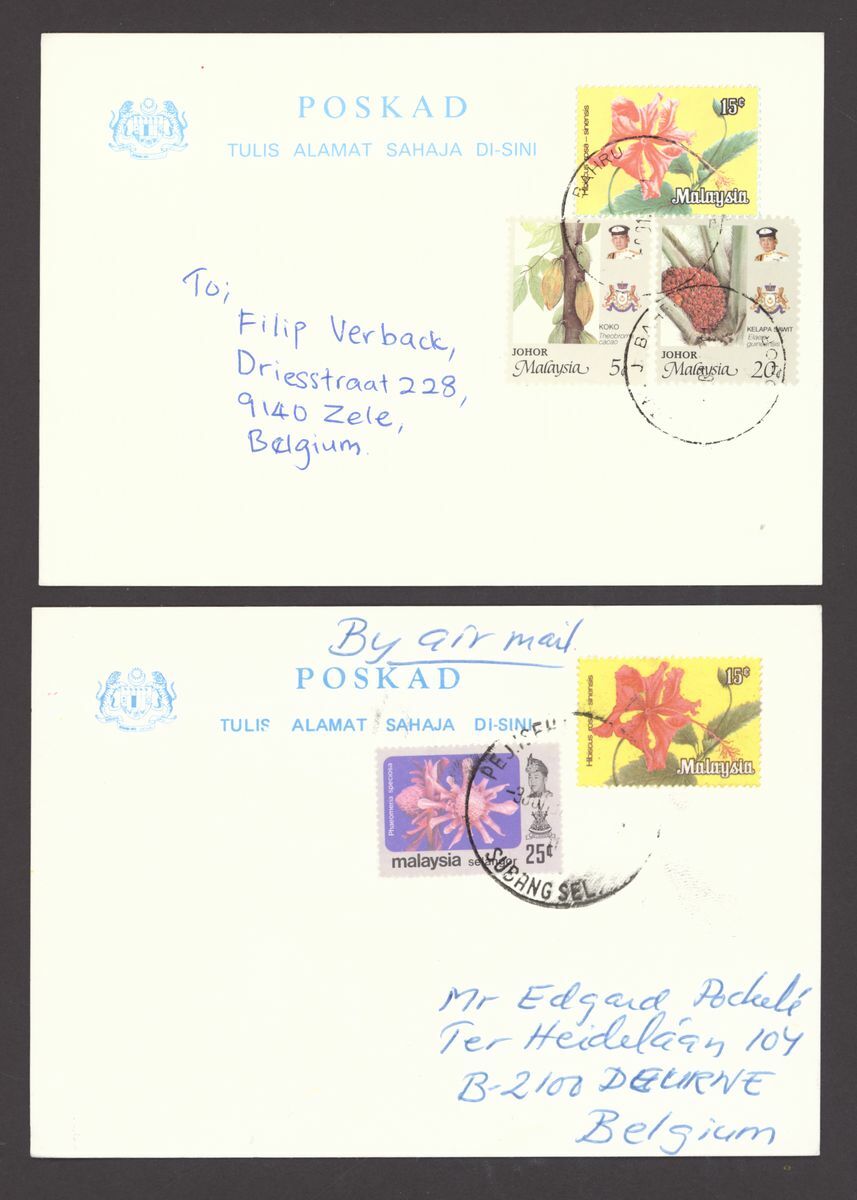 POSKAD
TULIS ALAMAT SAHAJA DI-SINI
15¢
Hibiscus rosa - sinensis
Malaysia
BAHRU
KOKO
Theobroma
cacao
JOHOR
Malaysia 5¢
KELAPA SAWIT
Elaeis
guineensis
JOHOR
Malaysia 20¢
To;
Filip Verback,
Driesstraat 228,
9140 Zele,
Belgium.
By air mail
POSKAD
TULIS ALAMAT SAHAJA DI-SINI
15¢
Hibiscus rosa - sinensis
Malaysia
Phaeomeria speciosa
malaysia selangor 25¢
SUBANG SEL
Mr Edgard Pockelé
Ter Heideláan 104
B-2100 DEURNE
Belgium